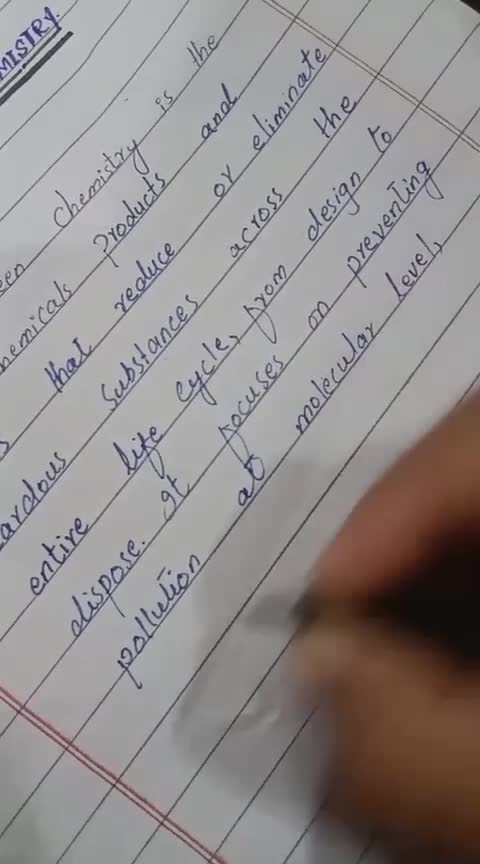 MISTRY.
een chemistry is the
hemicals products and
s that reduce or eliminate
ardous substances across the
entire life cycle, from design to
dispose. It focuses on preventing
pollution at molecular level,